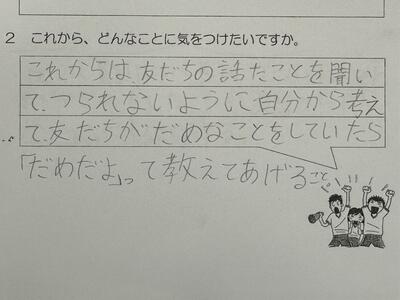 2 これから、どんなことに気をつけたいですか。
これからは、友だちの話たことを聞い
て、つられないように自分から考え
て、友だちがだめなことをしていたら
「だめだよ」って教えてあげること